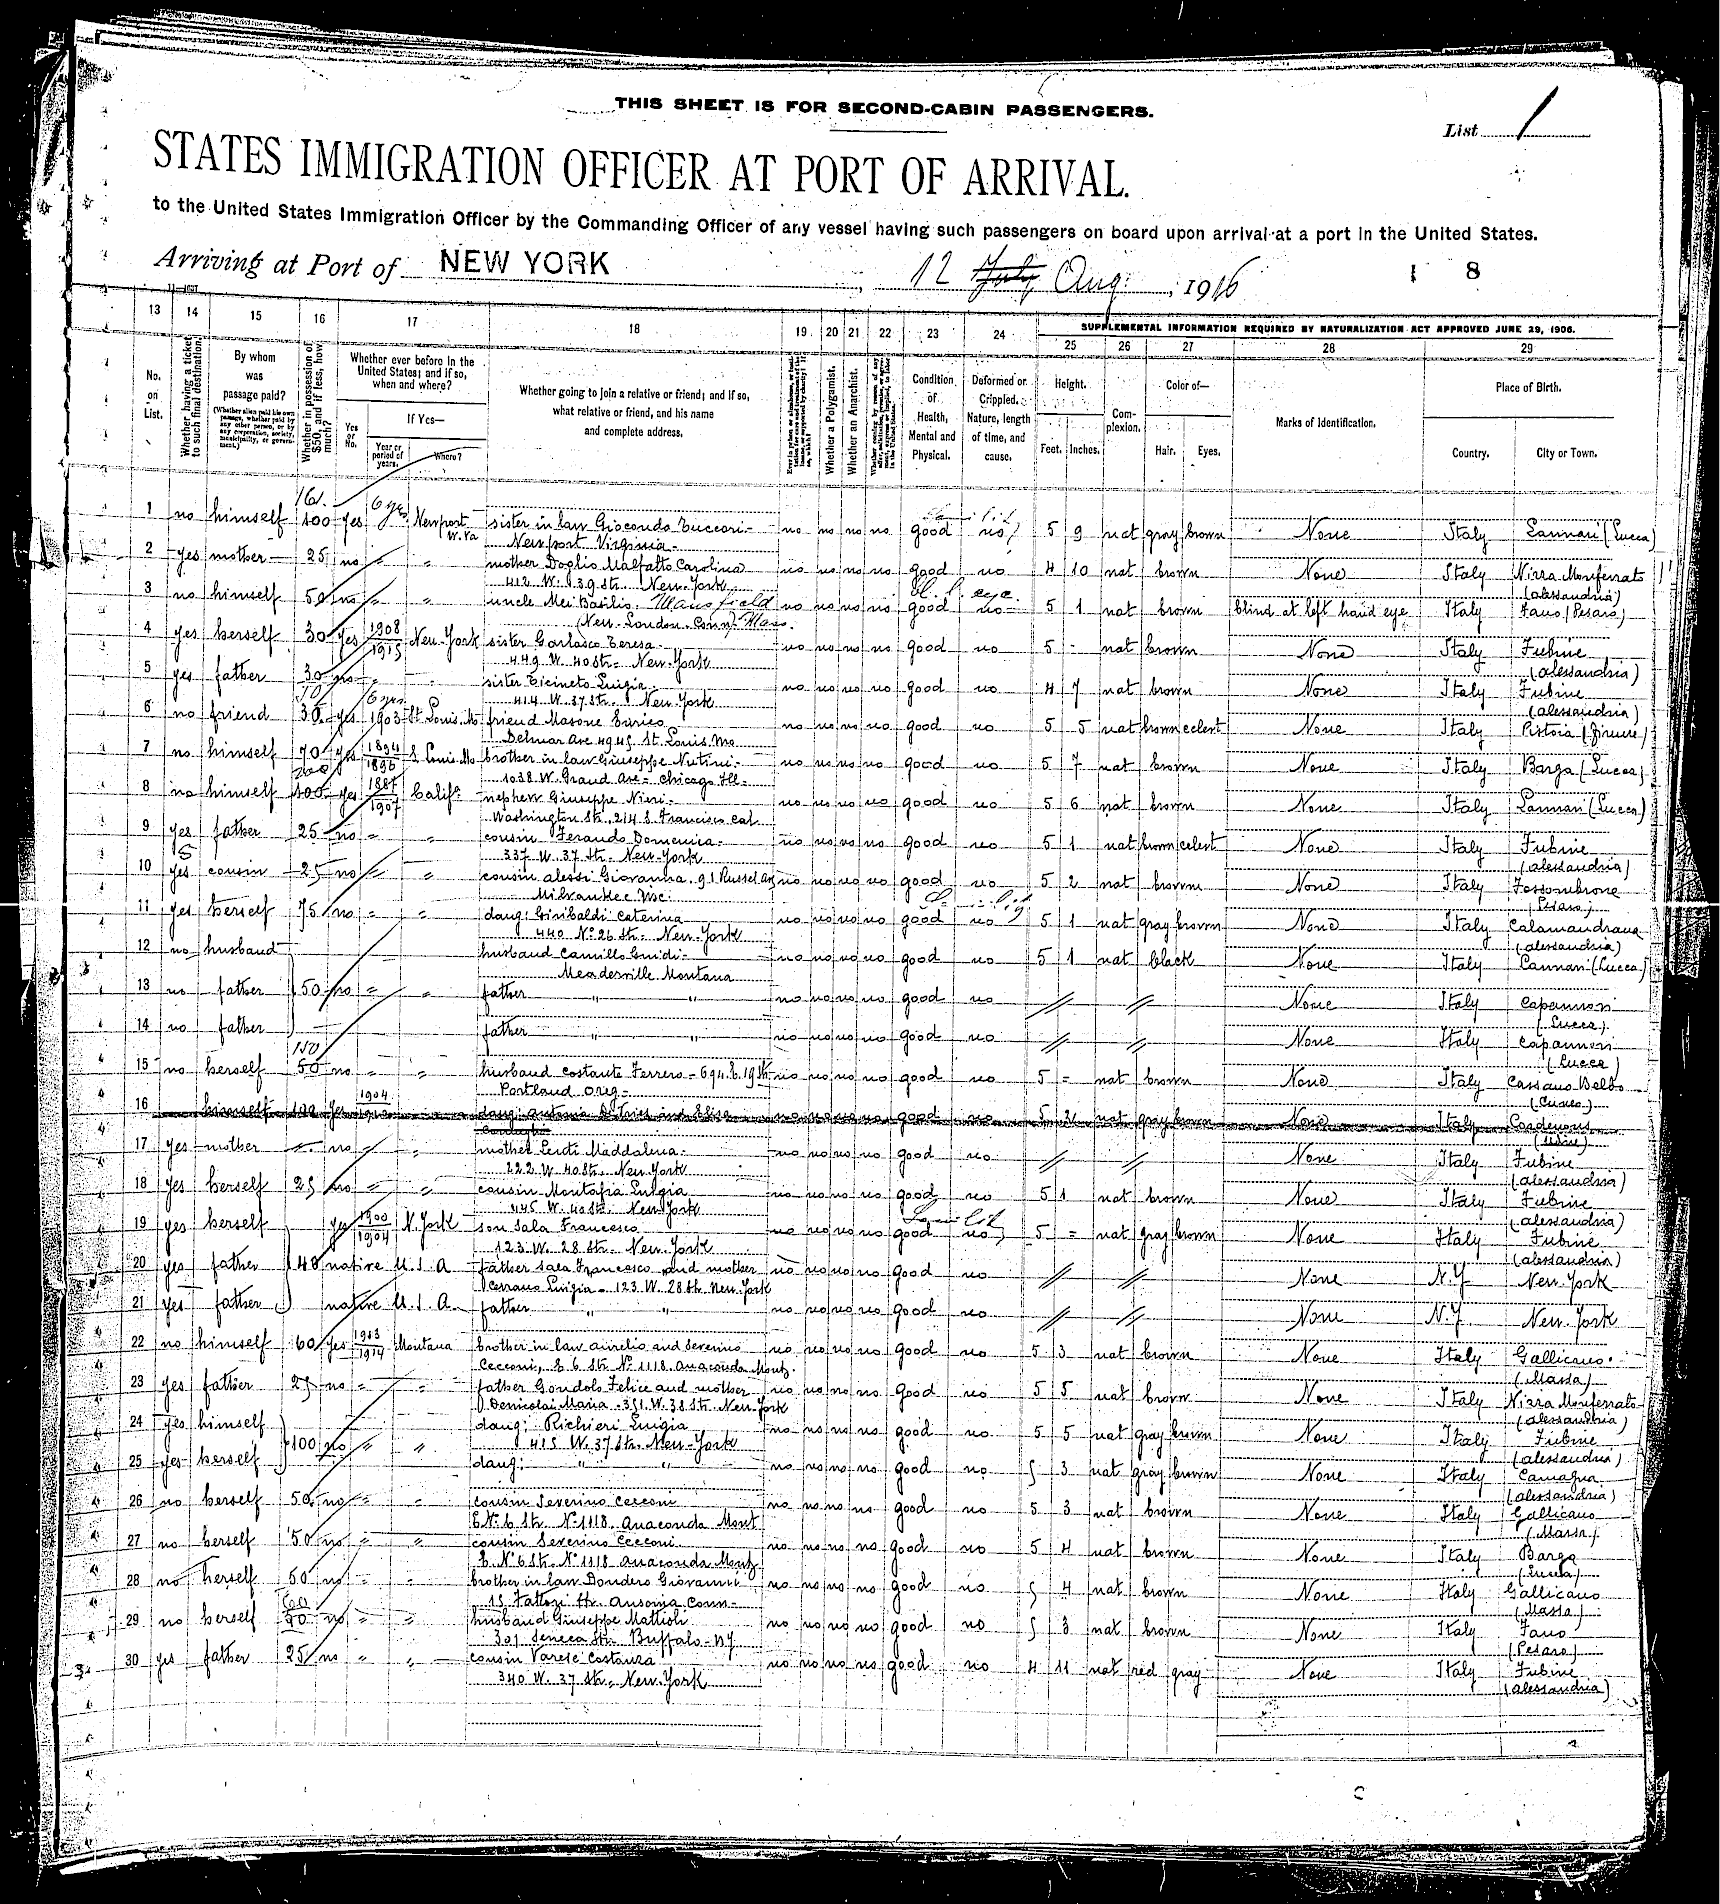 THIS SHEET IS FOR SECOND-CABIN PASSENGERS.
List 1
STATES IMMIGRATION OFFICER AT PORT OF ARRIVAL.
to the United States Immigration Officer by the Commanding Officer of any vessel having such passengers on board upon arrival at a port in the United States.
Arriving at Port of NEW YORK, 12 July Aug. , 1916 1 8
13 14 15 16 17 18 19 20 21 22 23 24 25 26 27 28 29
SUPPLEMENTAL INFORMATION REQUIRED BY NATURALIZATION ACT APPROVED JUNE 29, 1906.
No. on List.
Whether having a ticket to such final destination.
By whom was passage paid?
(Whether alien paid his own passage, whether paid by any other person, or by any corporation, society, municipality, or government.)
Whether in possession of $50, and if less, how much?
Whether ever before in the United States; and if so, when and where?
Yes or No.
If Yes—
Year or period of years.
Where?
Whether going to join a relative or friend; and if so, what relative or friend, and his name and complete address.
Whether a Polygamist.
Whether an Anarchist.
Condition of Health, Mental and Physical.
Deformed or Crippled. Nature, length of time, and cause.
Height.
Feet. Inches.
Complexion.
Color of—
Hair. Eyes.
Marks of Identification.
Place of Birth.
Country. City or Town.
1 no himself 100 yes 6 yrs Newport W. Va sister in law Gioconda Tuccori no no no no good no 5 9 nat gray brown None Italy Lammari (Lucca)
Newport Virginia
2 yes mother 25 no " mother Doglio Malfatto Carolina no no no no good no 4 10 nat brown None Italy Nizza Monferrato
412 W. 39 St. New-York (alessandria)
3 no himself 50 no " uncle Mei Basilio. Mansfield no no no no good no 5 1 nat brown blind at left hand eye Italy Fano (Pesaro)
(New-London-Conn) Mass.
4 yes herself 30 yes 1908 1915 New York sister Garlasco Teresa no no no no good no 5 - nat brown None Italy Fubine
449 W. 40 St. New-York (alessandria)
5 yes father 30 no sister Ticineto Luigia no no no no good no 4 7 nat brown None Italy Fubine
414 W. 37 St. New York (alessandria)
6 no friend 35 yes 6 yrs 1903 St Louis. Mo friend Masone Enrico no no no no good no 5 5 nat brown celest None Italy Pistoia (Firenze)
Delmar Ave 4945 St. Louis. Mo
7 no himself 70 yes 1894 1896 S. Louis. Mo brother in law Giuseppe Nutini no no no no good no 5 7 nat brown None Italy Barga (Lucca)
1038 W. Grand Ave - Chicago Ill.
8 no himself 100 yes 1907 Calif. nephew Giuseppe Nieri no no no no good no 5 6 nat brown None Italy Lammari (Lucca)
Washington St. 214 S. Francisco Cal
9 yes father 25 no " cousin Ferando Domenica no no no no good no 5 1 nat brown celest None Italy Fubine
337 W. 37 St. New-York (alessandria)
10 yes cousin 25 no " cousin Alessi Giovanna. 91 Russel av no no no no good no 5 2 nat brown None Italy Fossombrone
Milwaukee Wsc. (Pesaro)
11 yes herself 75 no " daug: Giribaldi Caterina no no no no good no 5 1 nat gray brown None Italy Calamandrana
440 No 26 St. New-York (alessandria)
12 no husband husband Camillo Guidi no no no no good no 5 1 nat black None Italy Lammari (Lucca)
Meaderville Montana
13 no father 50 no " father " " no no no no good no None Italy Capannori
(Lucca)
14 no father father " " no no no no good no None Italy Capannori
(Lucca)
15 no herself 150 50 no " husband Costante Ferrero - 694. E. 19 St no no no no good no 5 - nat brown None Italy Cassano Belbo
Portland Orig- (Cuneo)
16 himself 100 yes 1904 no no no no good no 5 nat gray brown None Italy Cordenons
(Udine)
17 yes mother no mother Lenti Maddalena no no no no good no None Italy Fubine
222 W 40 St. New York (alessandria)
18 yes herself 25 no " cousin Montafia Luigia no no no no good no 5 1 nat brown None Italy Fubine
445 W. 40 St. New-York (alessandria)
19 yes herself yes 1900 1904 N. York son Sala Francesco no no no no good no 5 - nat gray brown None Italy Fubine
123 W. 28 Str. New York (alessandria)
20 yes father 40 native U. S. A father Sala Francesco and mother no no no no good no None N.Y New-York
Cerrano Luigia - 123 W. 28 St. New-York
21 yes father native U. S. A father " " no no no no good no None N.Y New-York
22 no himself 60 yes 1913 1914 Montana brother in law Aurelio and Severino no no no no good no 5 3 nat brown None Italy Gallicano
Cecconi, E 6 St. No 1118 Anaconda Mont. (Massa)
23 yes father 25 no " father Gondolo Felice and mother no no no no good no 5 5 nat brown None Italy Nizza Monferrato
Denicolai Maria - 351 W. 38 St. New-York (alessandria)
24 yes himself daug: Richieri Luigia no no no no good no 5 5 nat gray brown None Italy Fubine
415 W. 37 St. New-York (alessandria)
25 yes herself 100 no " daug: " " no no no no good no 5 3 nat gray brown None Italy Camagna
(alessandria)
26 no herself 50 no " cousin Severino Cecconi no no no no good no 5 3 nat brown None Italy Gallicano
E No 6 Str. No 1118. Anaconda Mont (Massa)
27 no herself 50 no " cousin Severino Cecconi no no no no good no 5 4 nat brown None Italy Barga
E. No 6 St. No 1118 Anaconda Mont (Lucca)
28 no herself 50 no " brother in law Dondero Giovanni no no no no good no 5 4 nat brown None Italy Gallicano
15 Fattori Str. Ansonia Conn- (Massa)
29 no herself 60 50 no " husband Giuseppe Mattioli no no no no good no 5 3 nat brown None Italy Fano
301 Seneca Str. Buffalo - NY (Pesaro)
30 yes father 25 no " cousin Varese Costanza no no no no good no 4 11 nat red gray None Italy Fubine
340 W. 37 Str. New-York (alessandria)